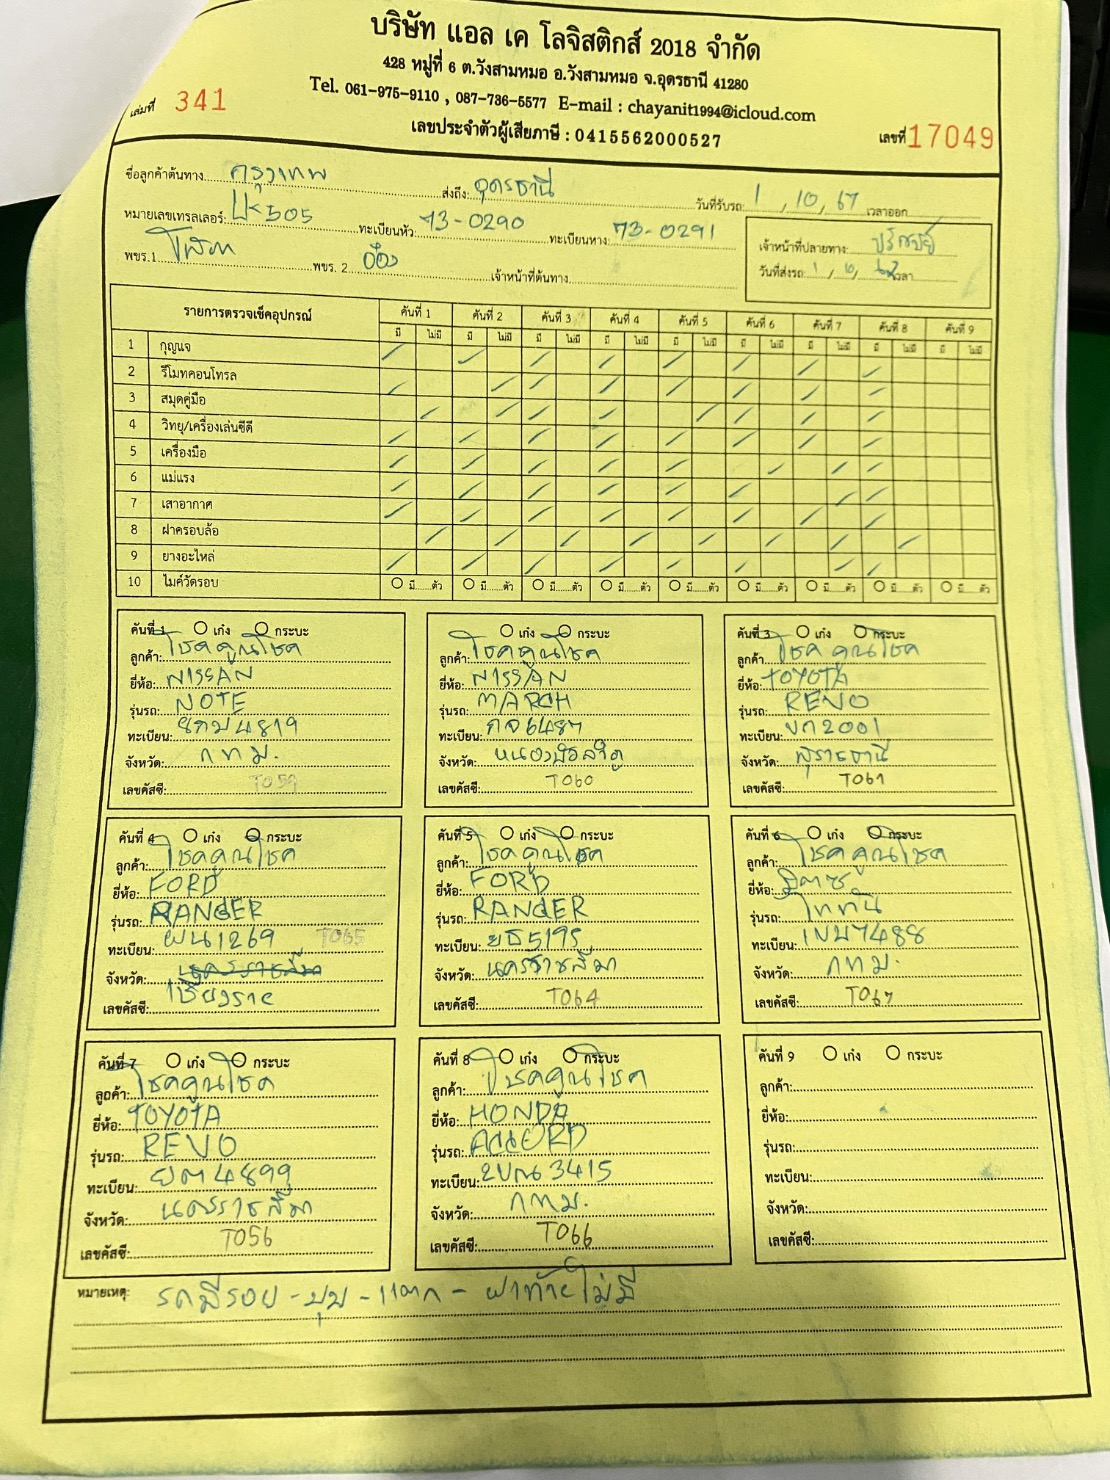 บริษัท แอล เค โลจิสติกส์ 2018 จำกัด
428 หมู่ที่ 6 ต.วังสามหมอ อ.วังสามหมอ จ.อุดรธานี 41280
Tel. 061-975-9110 , 087-736-5577 E-mail : chayanit1994@icloud.com
เลขประจำตัวผู้เสียภาษี : 0415562000527
เล่มที่ 341 เลขที่ 17049
ชื่อลูกค้าต้นทาง กรุงเทพ ส่งถึง: อุดรธานี วันที่รับรถ 1 , 10 , 67 เวลาออก
หมายเลขเทรลเลอร์: LK505 ทะเบียนหัว: 73-0290 ทะเบียนหาง: 73-0291
พขร.1 พขร. 2 อ๊อง เจ้าหน้าที่ต้นทาง
เจ้าหน้าที่ปลายทาง:
วันที่ส่งรถ เวลา
รายการตรวจเช็คอุปกรณ์ คันที่ 1 คันที่ 2 คันที่ 3 คันที่ 4 คันที่ 5 คันที่ 6 คันที่ 7 คันที่ 8 คันที่ 9
มี ไม่มี มี ไม่มี มี ไม่มี มี ไม่มี มี ไม่มี มี ไม่มี มี ไม่มี มี ไม่มี มี ไม่มี
1 กุญแจ
2 รีโมทคอนโทรล
3 สมุดคู่มือ
4 วิทยุ/เครื่องเล่นซีดี
5 เครื่องมือ
6 แม่แรง
7 เสาอากาศ
8 ฝาครอบล้อ
9 ยางอะไหล่
10 ไมค์วัดรอบ มี......ตัว มี......ตัว มี......ตัว มี......ตัว มี......ตัว มี......ตัว มี......ตัว มี......ตัว มี......ตัว
คันที่ 1 เก๋ง กระบะ
ลูกค้า: โชคคูณโชค
ยี่ห้อ: NISSAN
รุ่นรถ: NOTE
ทะเบียน: 4819
จังหวัด: กทม.
เลขคัสซี: T059
เก๋ง กระบะ
ลูกค้า: โชคคูณโชค
ยี่ห้อ: NISSAN
รุ่นรถ: MARCH
ทะเบียน: กจ6487
จังหวัด: หนองบัวลำภู
เลขคัสซี: T060
คันที่ 3 เก๋ง กระบะ
ลูกค้า โชคคูณโชค
ยี่ห้อ: TOYOTA
รุ่นรถ: REVO
ทะเบียน: บท2001
จังหวัด: สุราษธานี
เลขคัสซี: T061
คันที่ 4 เก๋ง กระบะ
ลูกค้า: โชคคูณโชค
ยี่ห้อ: FORD
รุ่นรถ: RANGER
ทะเบียน: ผน1269 T065
จังหวัด: นครราชสีมา
เลขคัสซี: เชียงราย
คันที่ 5 เก๋ง กระบะ
ลูกค้า: โชคคูณโชค
ยี่ห้อ: FORD
รุ่นรถ: RANGER
ทะเบียน: ยธ5195
จังหวัด: นครราชสีมา
เลขคัสซี: T064
คันที่ 6 เก๋ง กระบะ
ลูกค้า: โชคคูณโชค
ยี่ห้อ: มิตซู
รุ่นรถ: ไททัน
ทะเบียน: 1ฒม7488
จังหวัด: กทม.
เลขคัสซี: T067
คันที่ 7 เก๋ง กระบะ
ลูกค้า: โชคคูณโชค
ยี่ห้อ: TOYOTA
รุ่นรถ: REVO
ทะเบียน: ยต4899
จังหวัด: นครราชสีมา
เลขคัสซี: T056
คันที่ 8 เก๋ง กระบะ
ลูกค้า: โชคคูณโชค
ยี่ห้อ: HONDA
รุ่นรถ: ACCORD
ทะเบียน: 3415
จังหวัด: กทม.
เลขคัสซี: T066
คันที่ 9 เก๋ง กระบะ
ลูกค้า:
ยี่ห้อ:
รุ่นรถ:
ทะเบียน:
จังหวัด:
เลขคัสซี:
หมายเหตุ: รถมีรอย - บุบ - แตก - ฝาท้ายไม่มี